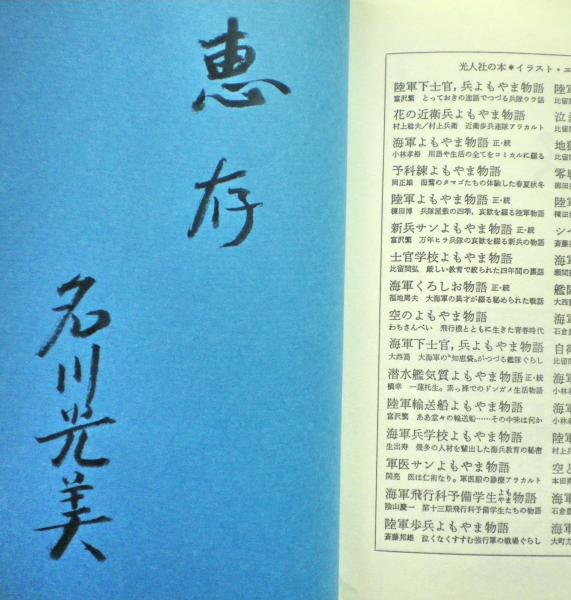 恵存
名川光美
光人社の本*イラスト・エ
陸軍下士官,兵よもやま物語
富沢繁 とっておきの逸話でつづる兵隊ウラ話
花の近衛兵よもやま物語
村上稔夫/村上兵衛 近衛歩兵連隊アラカルト
海軍よもやま物語 正・続
小林孝裕 用語や生活の全てをコミカルに綴る
予科練よもやま物語
海鷲のタマゴたちの体験した春夏秋冬
陸軍よもやま物語 正・続
棟田博 兵隊屋敷の四季,哀歓を綴る陸軍物語
新兵サンよもやま物語 正・続
富沢繁 万年ヒラ兵隊の哀歓を綴る新兵の物語
士官学校よもやま物語
比留間弘 厳しい教育で絞られた四年間の裏話
海軍くろしお物語 正・続
福地周夫 大海軍の異才が綴る秘められた戦話
空のよもやま物語
わちさんぺい 飛行機とともに生きた青春時代
海軍下士官,兵よもやま物語
大西喬 大海軍の"知恵袋"がつづる艦隊ぐらし
潜水艦気質よもやま物語 正・続
槇幸 一蓮托生。素っ裸でのドンガメ生活物語
陸軍輸送船よもやま物語
富沢繁 ああ堂々の輸送船……その中味は何か
海軍兵学校よもやま物語
生出寿 幾多の人材を輩出した海兵教育の秘密
軍医サンよもやま物語
関亮 医は仁術なり。軍医殿の診療アラカルト
海軍飛行科予備学生よもやま物語
陰山慶一 第十三期飛行科予備学生たちの物語
陸軍歩兵よもやま物語
斎藤邦雄 泣くなくすすむ強行軍の戦場ぐらし